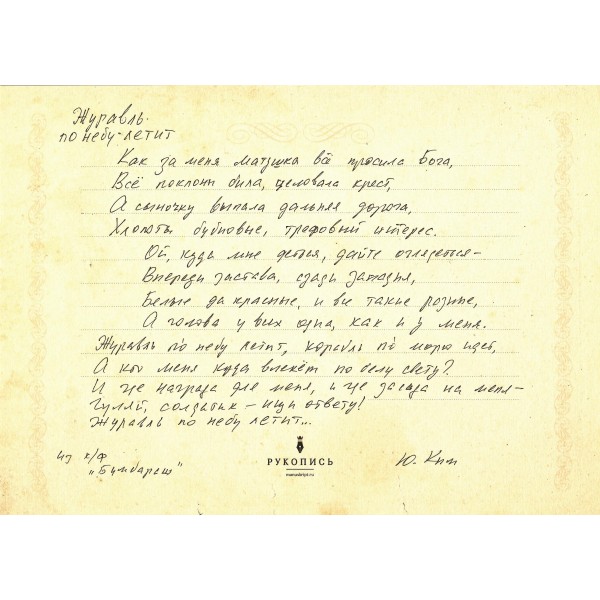 Журавль
по небу летит
Как за меня матушка всё просила Бога,
Всё поклоны била, целовала крест,
А сыночку выпала дальняя дорога,
Хлопоты бубновые, трефовый интерес.
Ой, куда мне деться, дайте оглядеться –
Впереди застава, сзади западня,
Белые да красные, и все такие разные,
А голова у всех одна, как и у меня.
Журавль по небу летит, корабль по морю идёт,
А кто меня куда влечёт по белу свету?
И где награда для меня, и где засада на меня –
Гуляй, солдатик – ищи ответу!
Журавль по небу летит...
из к/ф
„Бумбараш"
РУКОПИСЬ
manuskript.ru
Ю. Ким